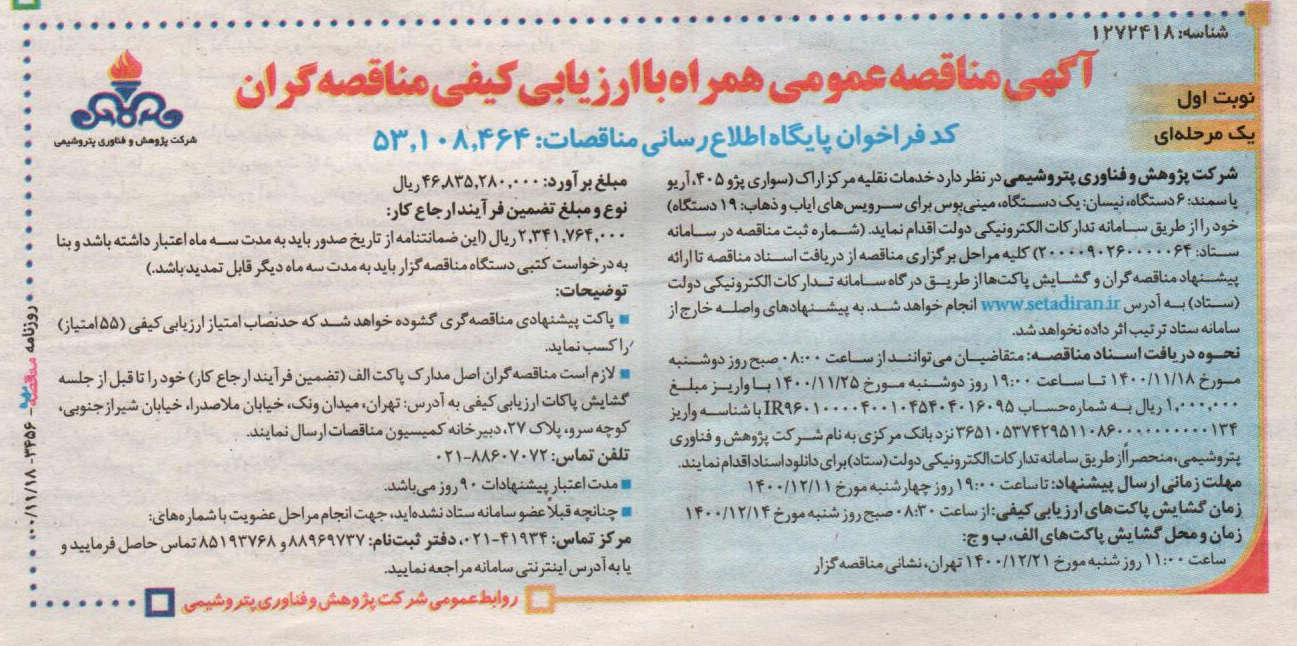 شناسه: ۱۲۷۲۴۱۸
آگهی مناقصه عمومی همراه با ارزیابی کیفی مناقصه گران
نوبت اول
یک مرحله‌ای
کد فراخوان پایگاه اطلاع رسانی مناقصات: ۵۳,۱۰۸,۴۶۴
شرکت پژوهش و فناوری پتروشیمی
شرکت پژوهش و فناوری پتروشیمی در نظر دارد خدمات نقلیه مرکز اراک (سواری پژو ۴۰۵، آریو
یا سمند: ۶ دستگاه، نیسان: یک دستگاه، مینی‌بوس برای سرویس‌های ایاب و ذهاب: ۱۹ دستگاه)
خود را از طریق سامانه تدارکات الکترونیکی دولت اقدام نماید. (شماره ثبت مناقصه در سامانه
ستاد: ۲۰۰۰۰۰۹۰۲۶۰۰۰۰۰۶۴) کلیه مراحل برگزاری مناقصه از دریافت اسناد مناقصه تا ارائه
پیشنهاد مناقصه گران و گشایش پاکت‌ها از طریق درگاه سامانه تدارکات الکترونیکی دولت
(ستاد) به آدرس www.setadiran.ir انجام خواهد شد. به پیشنهادهای واصله خارج از
سامانه ستاد ترتیب اثر داده نخواهد شد.
نحوه دریافت اسناد مناقصه: متقاضیان می‌توانند از ساعت ۰۸:۰۰ صبح روز دوشنبه
مورخ ۱۴۰۰/۱۱/۱۸ تا ساعت ۱۹:۰۰ روز دوشنبه مورخ ۱۴۰۰/۱۱/۲۵ با واریز مبلغ
۱,۰۰۰,۰۰۰ ریال به شماره‌حساب IR۹۶۰۱۰۰۰۰۴۰۰۱۰۴۵۴۰۴۰۱۶۰۹۵ با شناسه واریز
۳۶۵۱۰۵۳۷۴۲۹۵۱۱۰۸۶۰۰۰۰۰۰۰۰۰۰۱۳۴ نزد بانک مرکزی به نام شرکت پژوهش و فناوری
پتروشیمی، منحصراً از طریق سامانه تدارکات الکترونیکی دولت (ستاد) برای دانلود اسناد اقدام نمایند.
مهلت زمانی ارسال پیشنهاد: تا ساعت ۱۹:۰۰ روز چهارشنبه مورخ ۱۴۰۰/۱۲/۱۱
زمان گشایش پاکت‌های ارزیابی کیفی: از ساعت ۰۸:۳۰ صبح روز شنبه مورخ ۱۴۰۰/۱۲/۱۴
زمان و محل گشایش پاکت‌های الف، ب و ج:
ساعت ۱۱:۰۰ روز شنبه مورخ ۱۴۰۰/۱۲/۲۱ تهران، نشانی مناقصه گزار
مبلغ برآورد: ۴۶,۸۳۵,۲۸۰,۰۰۰ ریال
نوع و مبلغ تضمین فرآیند ارجاع کار:
۲,۳۴۱,۷۶۴,۰۰۰ ریال (این ضمانتنامه از تاریخ صدور باید به مدت سه ماه اعتبار داشته باشد و بنا
به درخواست کتبی دستگاه مناقصه گزار باید به مدت سه ماه دیگر قابل تمدید باشد.)
توضیحات:
■ پاکت پیشنهادی مناقصه گری گشوده خواهد شد که حدنصاب امتیاز ارزیابی کیفی (۵۵ امتیاز)
را کسب نماید.
■ لازم است مناقصه گران اصل مدارک پاکت الف (تضمین فرآیند ارجاع کار) خود را تا قبل از جلسه
گشایش پاکات ارزیابی کیفی به آدرس: تهران، میدان ونک، خیابان ملاصدرا، خیابان شیراز جنوبی،
کوچه سرو، پلاک ۲۷، دبیرخانه کمیسیون مناقصات ارسال نمایند.
تلفن تماس: ۸۸۶۰۷۰۷۲-۰۲۱
■ مدت اعتبار پیشنهادات ۹۰ روز می‌باشد.
■ چنانچه قبلاً عضو سامانه ستاد نشده‌اید، جهت انجام مراحل عضویت با شماره‌های:
مرکز تماس: ۴۱۹۳۴-۰۲۱، دفتر ثبت‌نام: ۸۸۹۶۹۷۳۷ و ۸۵۱۹۳۷۶۸ تماس حاصل فرمایید و
یا به آدرس اینترنتی سامانه مراجعه نمایید.
روابط عمومی شرکت پژوهش و فناوری پتروشیمی
روزنامه مناقصه - ۳۳۵۶ - ۱۴۰۰/۱۱/۱۸